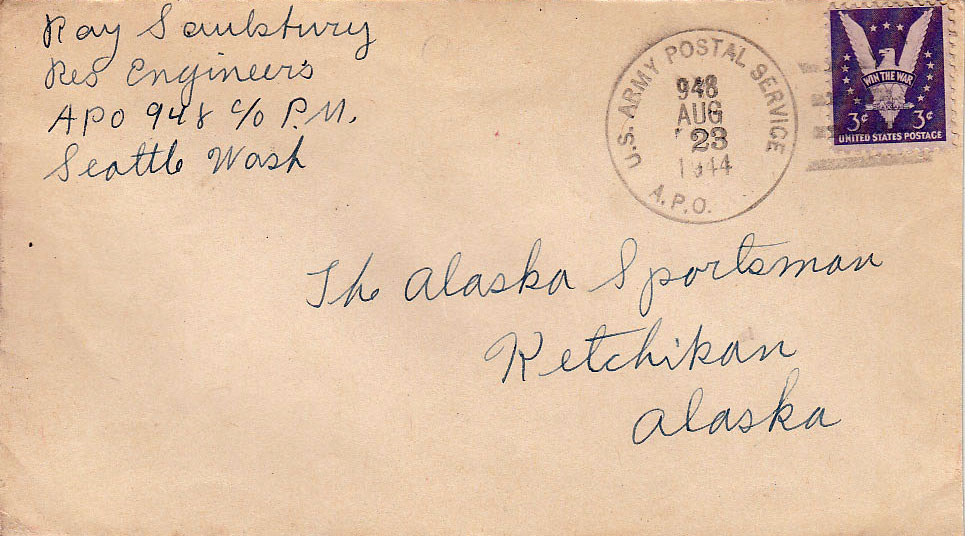 Ray Saulsbury
Res Engineers
APO 948 c/o P.M.
Seattle Wash
U.S. ARMY POSTAL SERVICE
948
AUG
23
1944
A.P.O.
WIN THE WAR
3¢ 3¢
UNITED STATES POSTAGE
The Alaska Sportsman
Ketchikan
Alaska